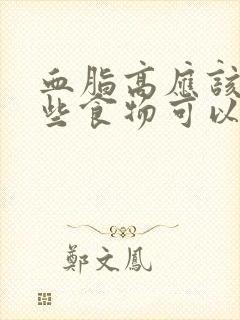 血脂高應該
些食物可以
鄭文鳳